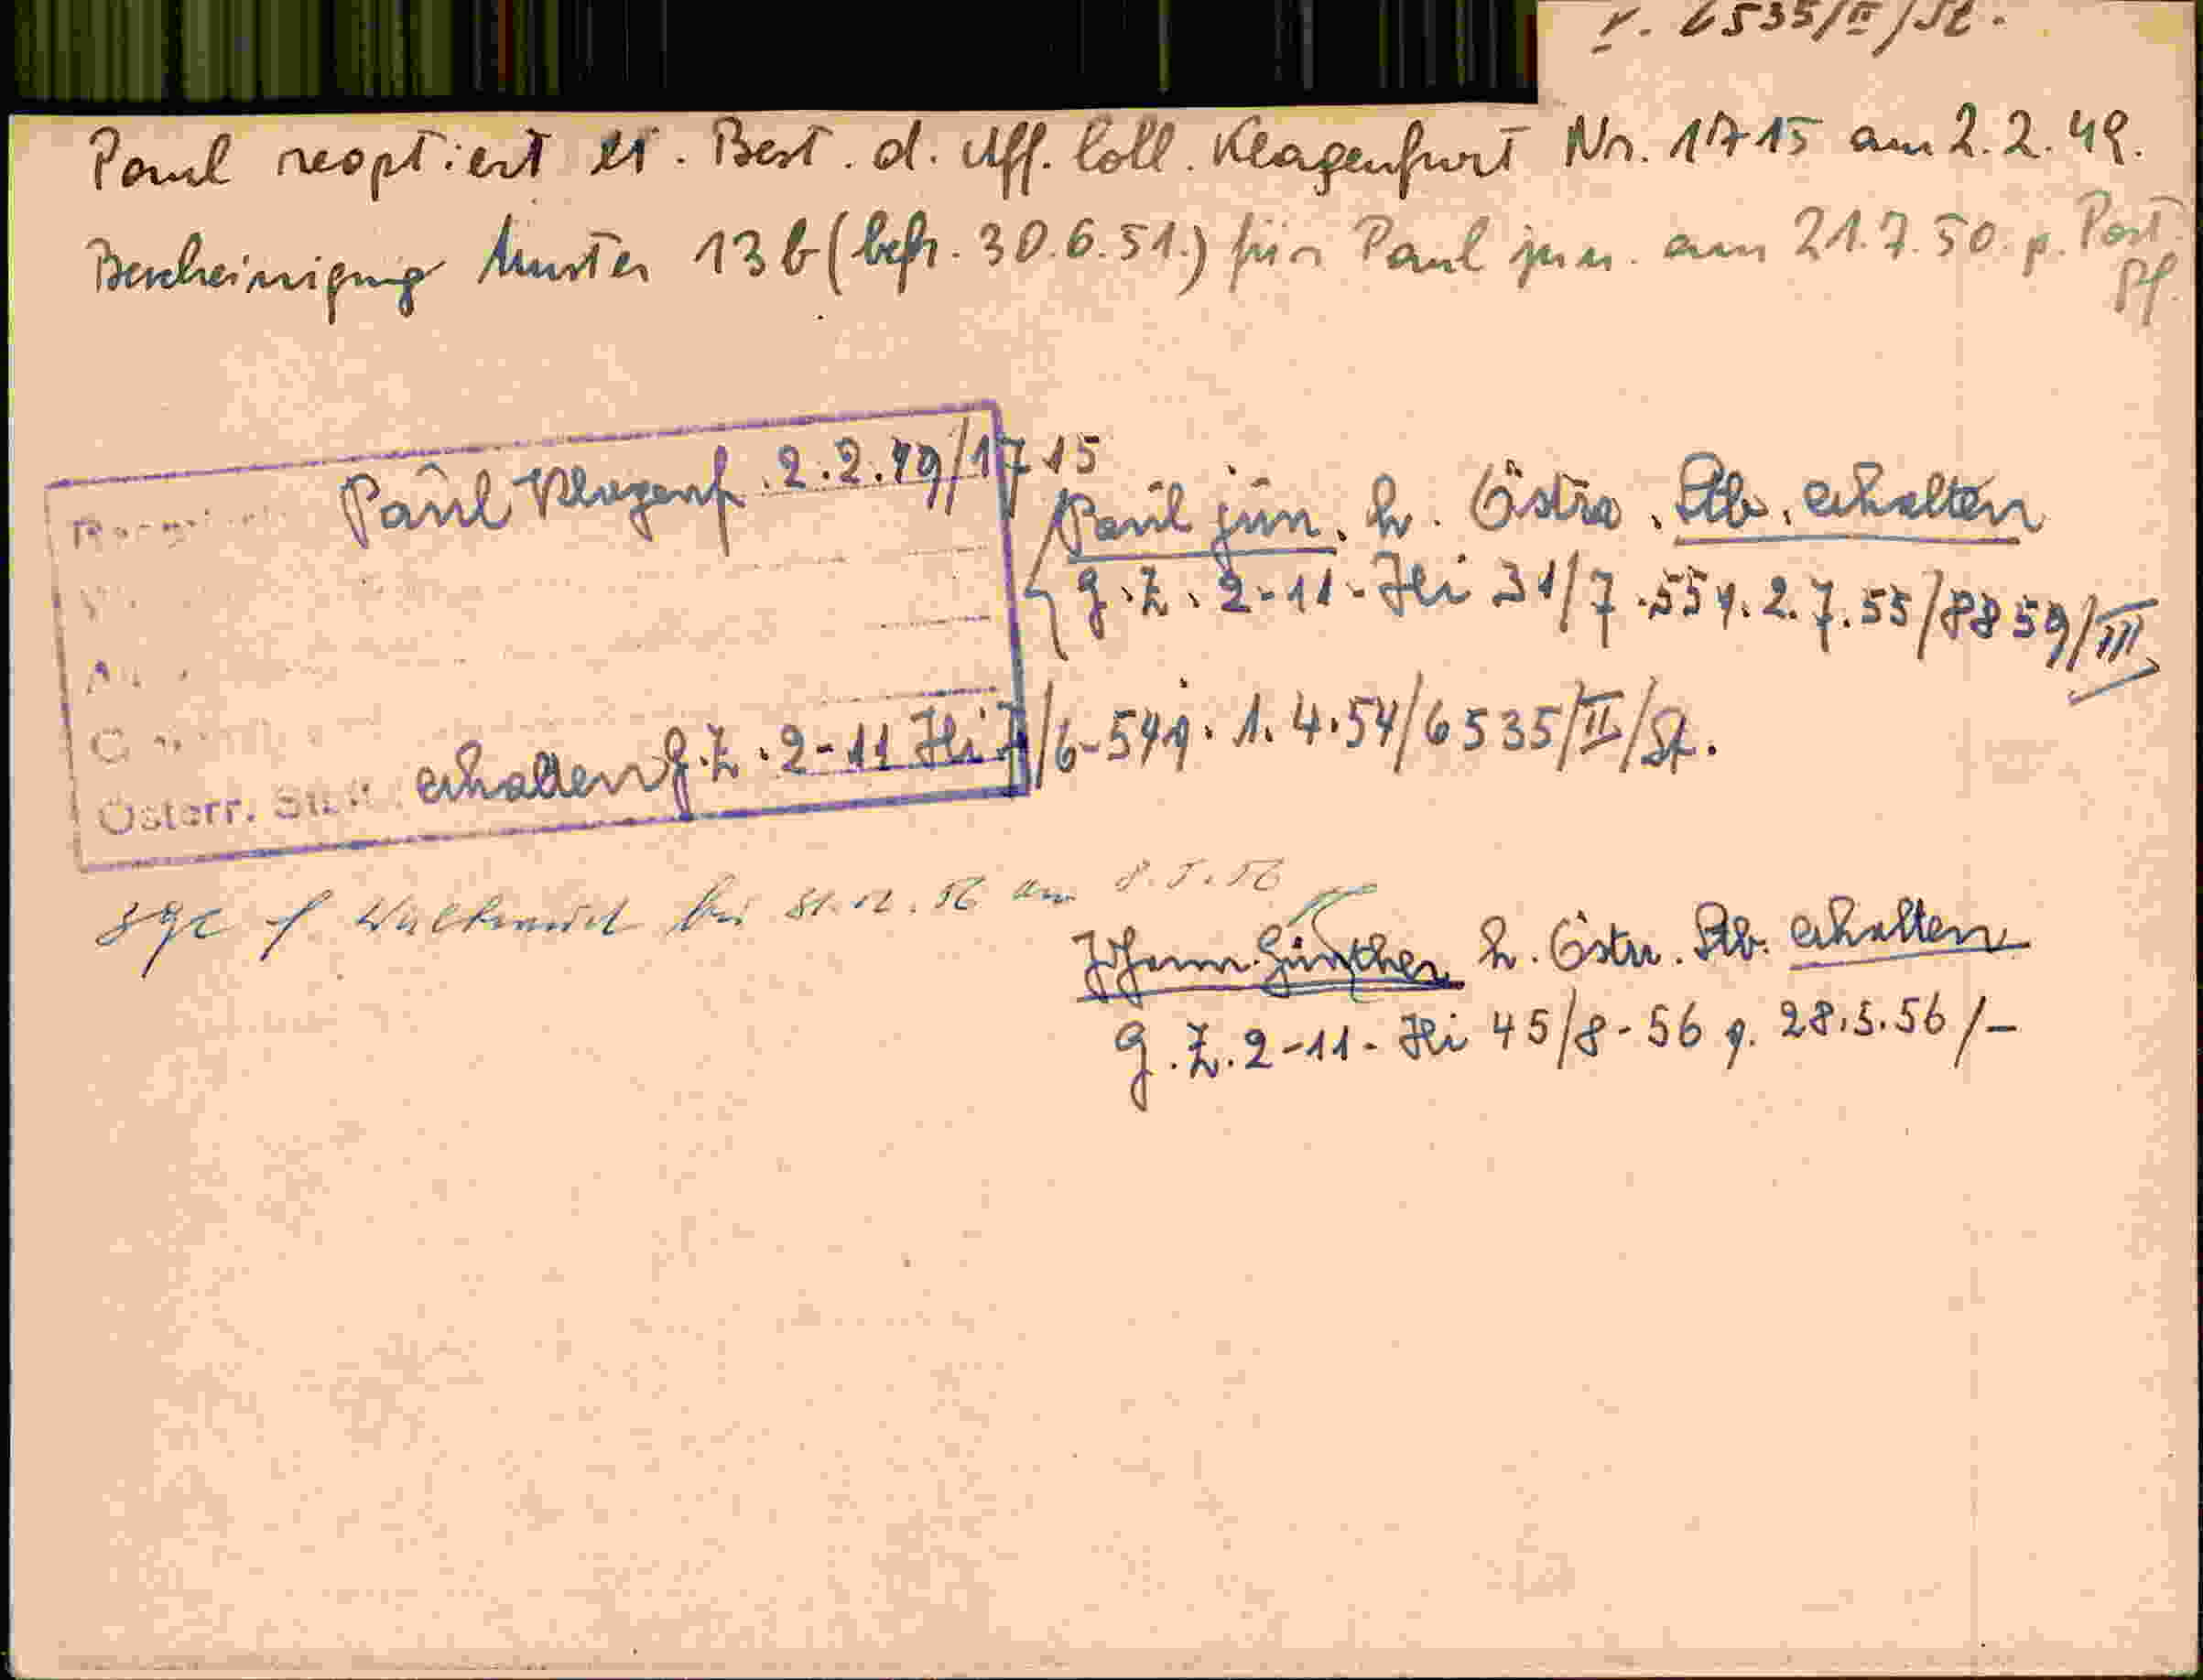 v. 6535/II/St.
Paul reoptiert lt. Best. d. Uff. Coll. Klagenfurt Nr. 1715 am 2.2.49.
Bescheinigung Muster 13b (befr. 30.6.51.) für Paul jun. am 21.7.50. p. Post.
Pf.
Paul Klagenf. 2.2.49/1715
Paul jun. h. Östrr. Stb. erhalten
g.Z. 2-11-Hi 31/7.55 v. 2.7.55/8859/III
Österr. erhalten g.Z. 2-11 Hi 7/6-54 v. 1.4.54/6535/II/St.
bis 31.12.56 am 8.5.56
Johann Günther h. Östrr. Stb. erhalten
g.Z. 2-11-Hi 45/8-56 v. 28.5.56/-